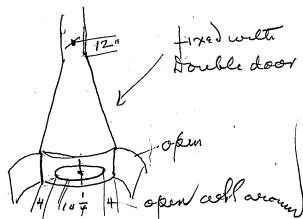 12"
fixed with
Double door
open
4 14 4
open all around